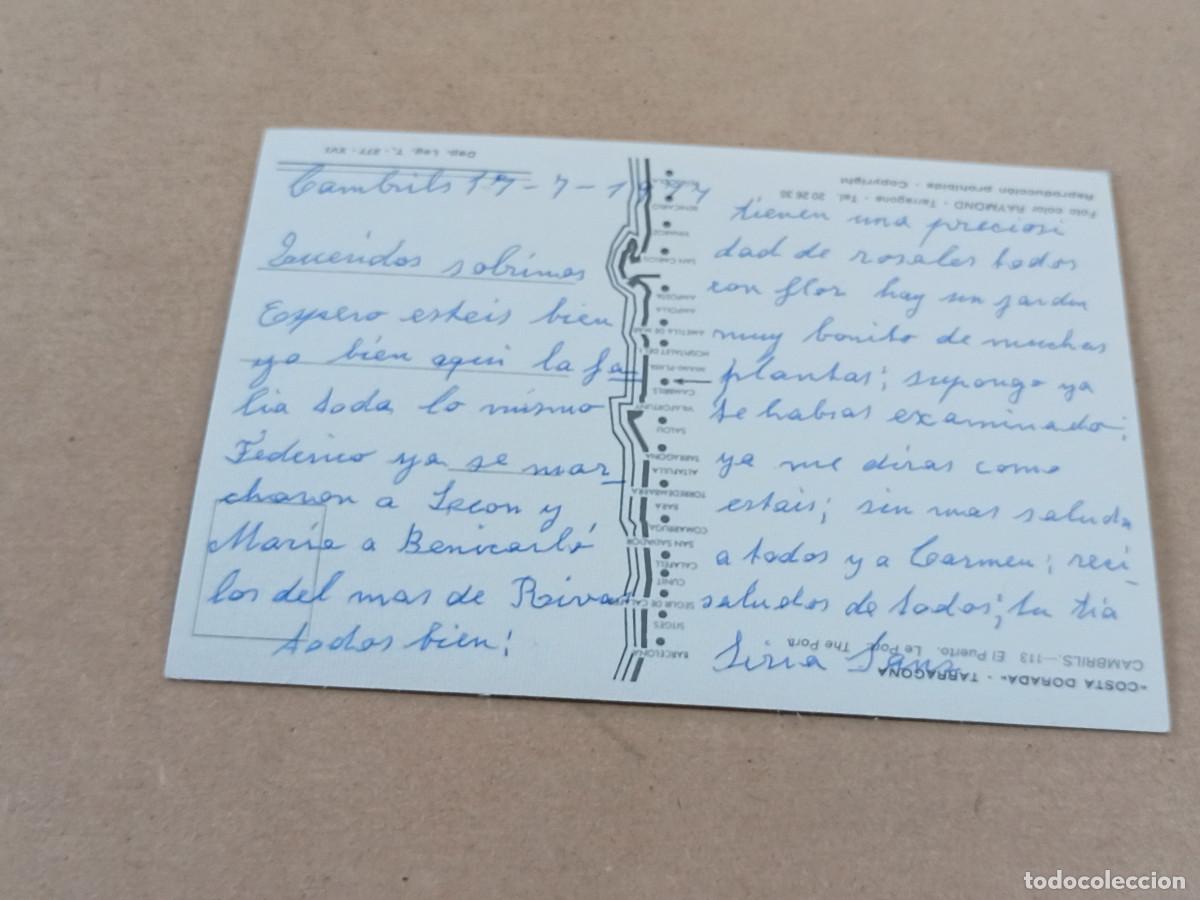 Cambrils 17-7-1977
Queridos sobrinos
Espero esteis bien
yo bien aqui la fa
lia toda lo mismo
Federico ya se mar
charon a y
María a Benicarló
los del mas de Rivas
todos bien;
tienen una preciosi
dad de rosales todos
con flor hay un jardin
muy bonito de muchas
plantas; supongo ya
te habras examinado;
ya me diras como
estais; sin mas saluda
a todos y a Carmen; reci-
saludos de todos; tu tia
Siria Sans
Dep. Leg. T. - 277 - XVI
Reproducción prohibida - Copyright
Foto color RAYMOND - Tarragona - Tel. 20 26 30
BENICARLO
VINAROZ
SAN CARLOS
AMPOSTA
AMPOLLA
AMETLLA DE MAR
HOSPITALET DEL I.
MIAMI-PLAYA
CAMBRILS
VILAFORTUNY
SALOU
TARRAGONA
ALTAFULLA
TORREDEMBARRA
BARA
COMARRUGA
SAN SALVADOR
CALAFELL
CUNIT
SEGUR DE CALAFELL
SITGES
BARCELONA
«COSTA DORADA» - TARRAGONA
CAMBRILS.—113 El Puerto. Le Port. The Port.
todocoleccion